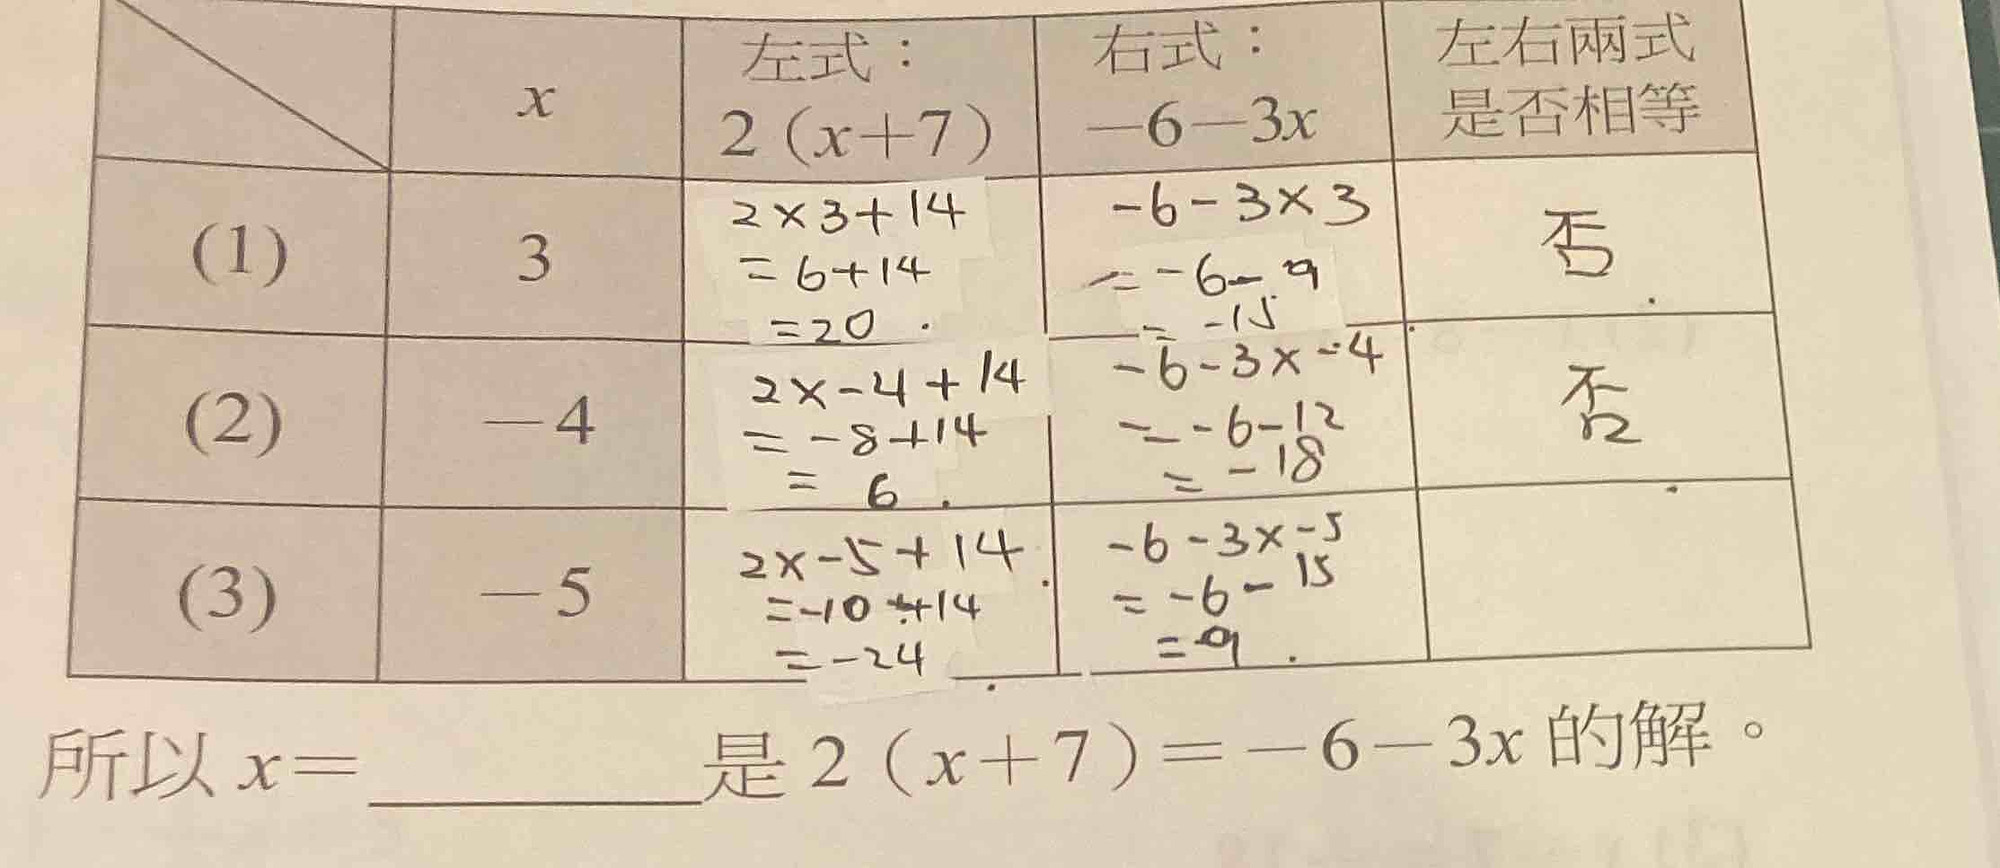 x
左式：
2（x＋7）
右式：
－6－3x
左右兩式
是否相等
(1)
3
2×3+14
=6+14
=20
-6-3×3
=-6-9
=-15
否
(2)
－4
2×-4+14
=-8+14
=6
-6-3×-4
=-6-12
=-18
否
(3)
－5
2×-5+14
=-10+14
=-24
-6-3×-5
=-6-15
=9
所以 x＝________是 2（x＋7）＝－6－3x 的解。